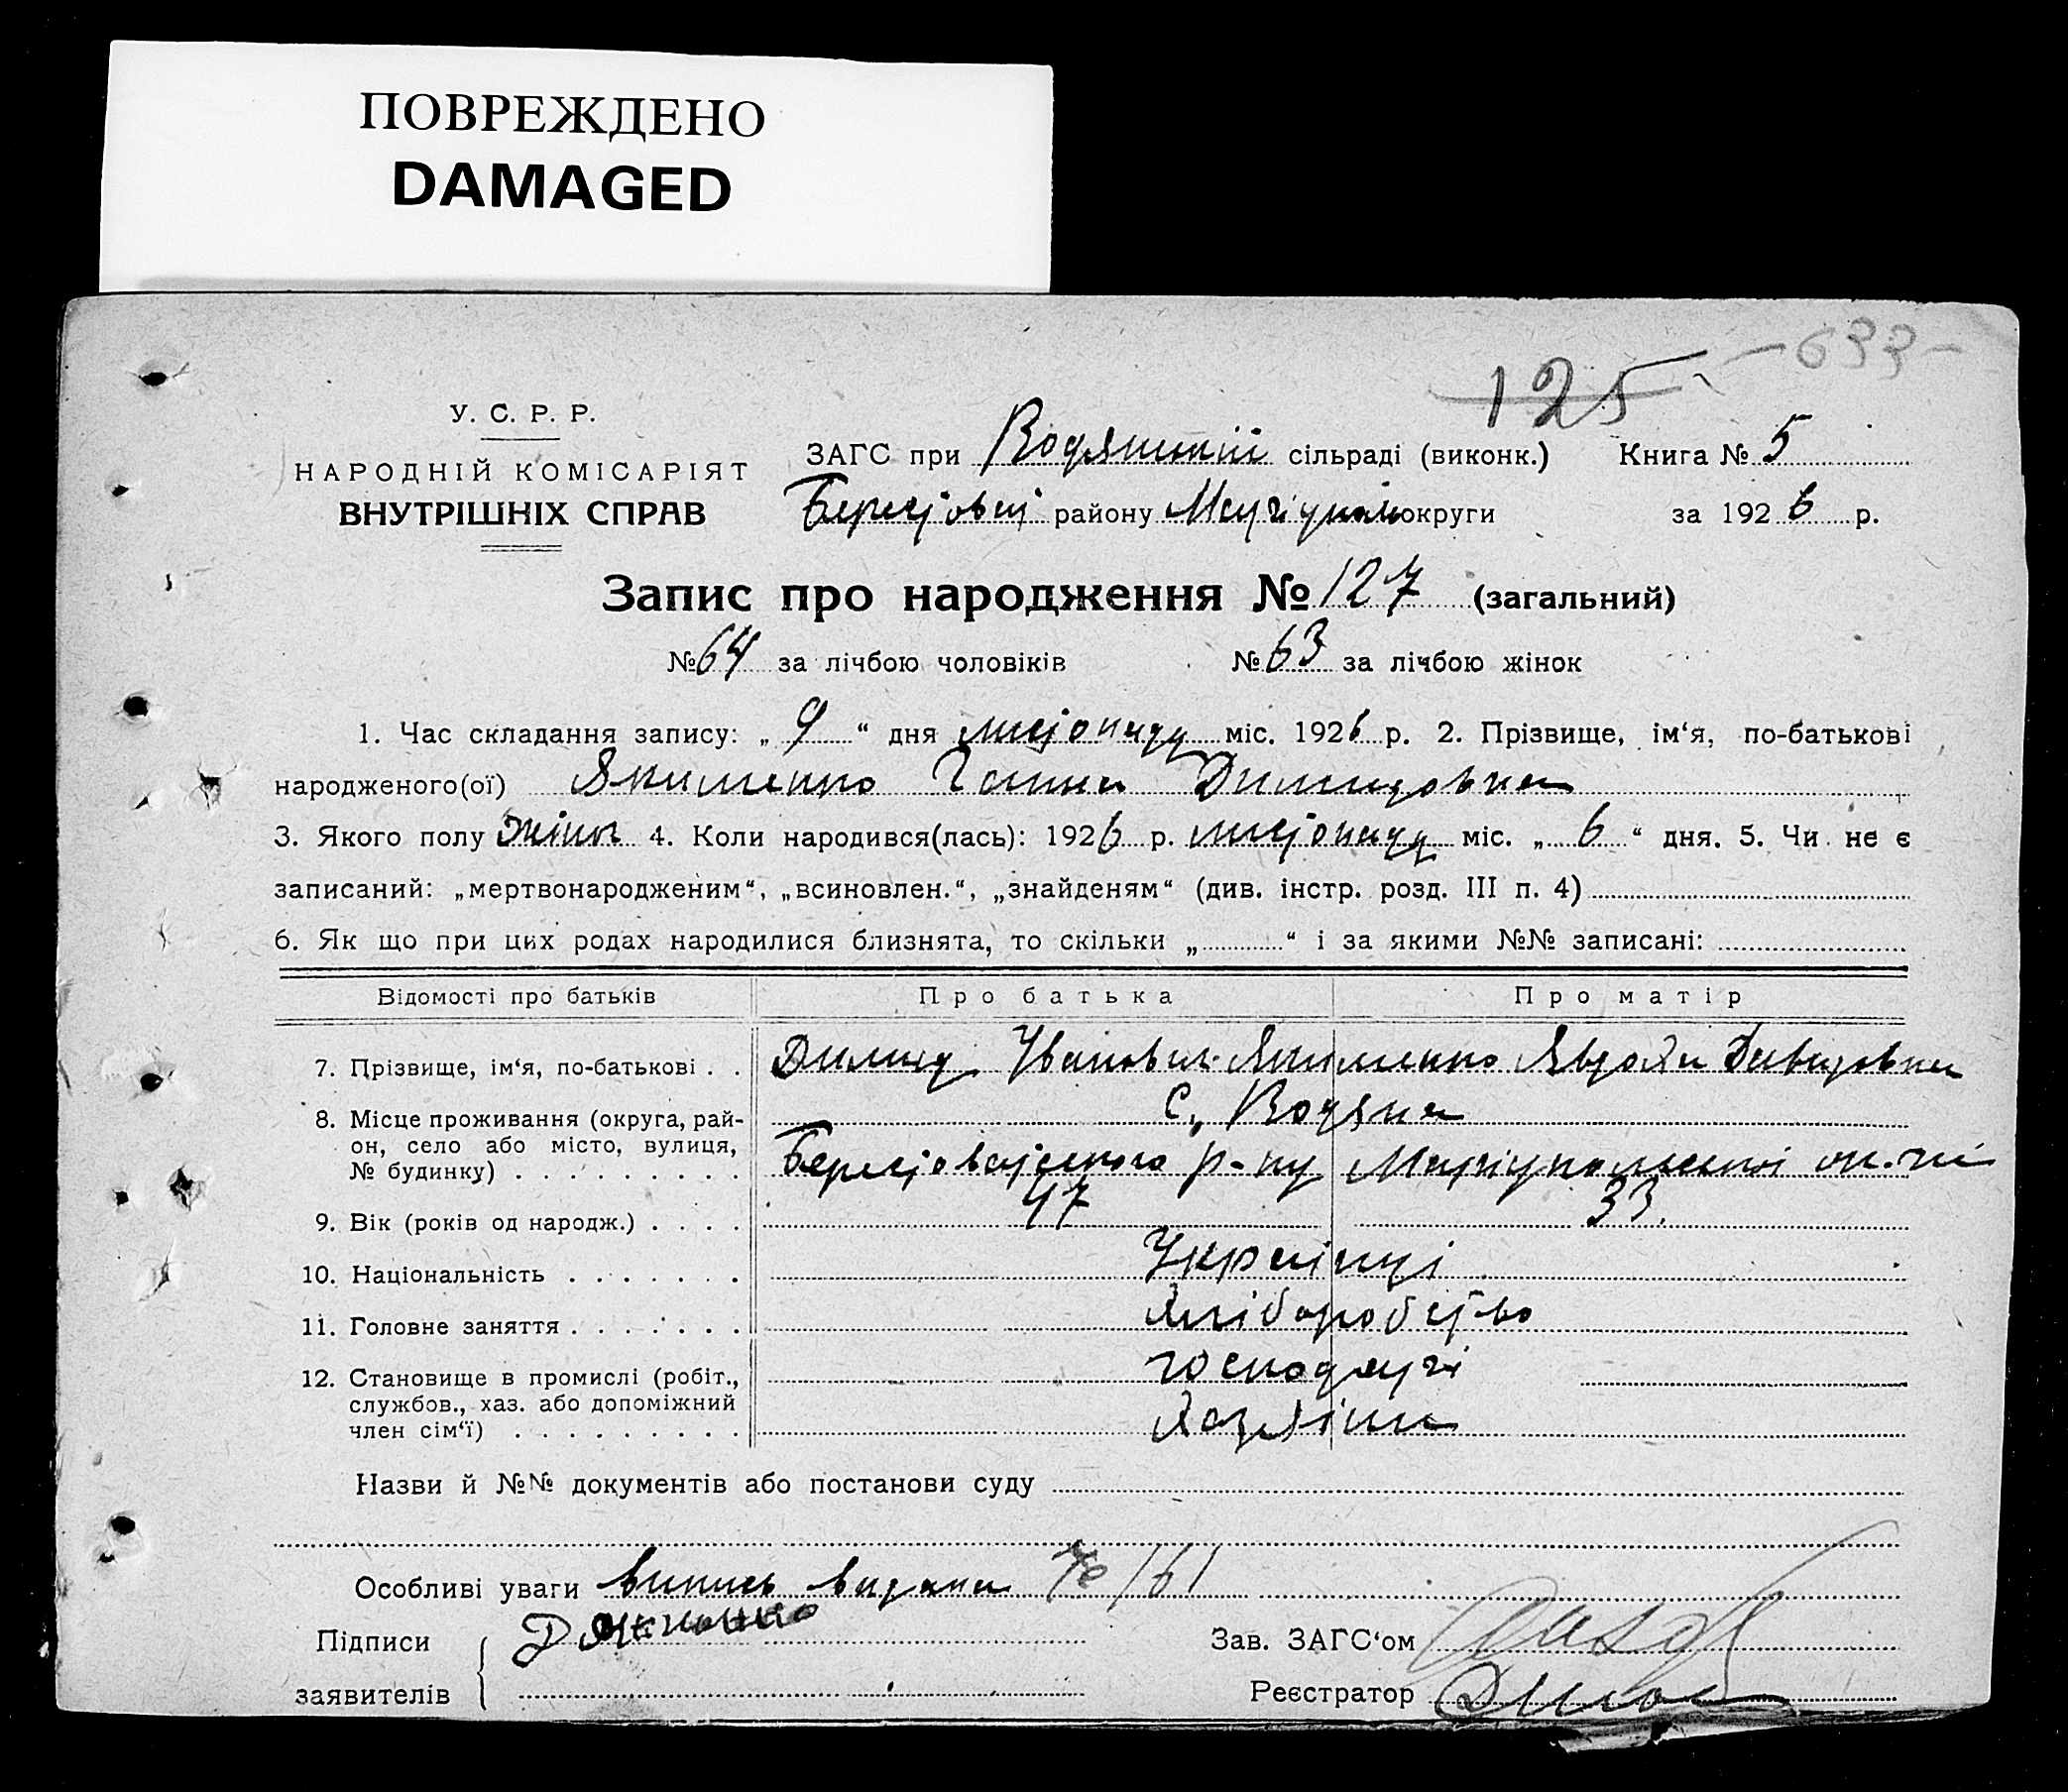 ПОВРЕЖДЕНО
DAMAGED
- 633 -
125
У. С. Р. Р.
НАРОДНІЙ КОМІСАРІЯТ
ВНУТРІШНІХ СПРАВ
ЗАГС при Водянській сільраді (виконк.) Книга № 5
району Маріупольокруги за 1926 р.
Запис про народження № 127 (загальний)
№ 64 за лічбою чоловіків № 63 за лічбою жінок
1. Час складання запису: „ 9 “ дня листопаду міс. 1926 р. 2. Прізвище, ім‘я, по-батькові
народженого(ої) Якименко Ганна Димидовна
3. Якого полу жіноч 4. Коли народився(лась): 1926 р. листопаду міс. „ 6 “ дня. 5. Чи не є
записаний: „мертвонародженим“, „всиновлен.“, „знайденям“ (див. інстр. розд. III п. 4)
6. Як що при цих родах народилися близнята, то скільки „ “ і за якими №№ записані:
Відомості про батьків Про батька Про матір
7. Прізвище, ім‘я, по-батькові . . Димид Іванович Якименко Явдоха Давидовна
8. Місце проживання (округа, рай- с. Водяна
он, село або місто, вулиця,
№ будинку) . . . . . . . . . р-ну Маріупольської ок-ги
9. Вік (років од народж.) . . . . 47 33.
10. Національність . . . . . . . Українці
11. Головне заняття . . . . . . . Хліборобство
12. Становище в промислі (робіт., господарі
службов., хаз. або допоміжний
член сім‘ї) . . . . . . . . . Хазяїни
Назви й №№ документів або постанови суду
Особливі уваги випись видана /61
Підписи Д Якименко Зав. ЗАГС‘ом
заявителів Реєстратор